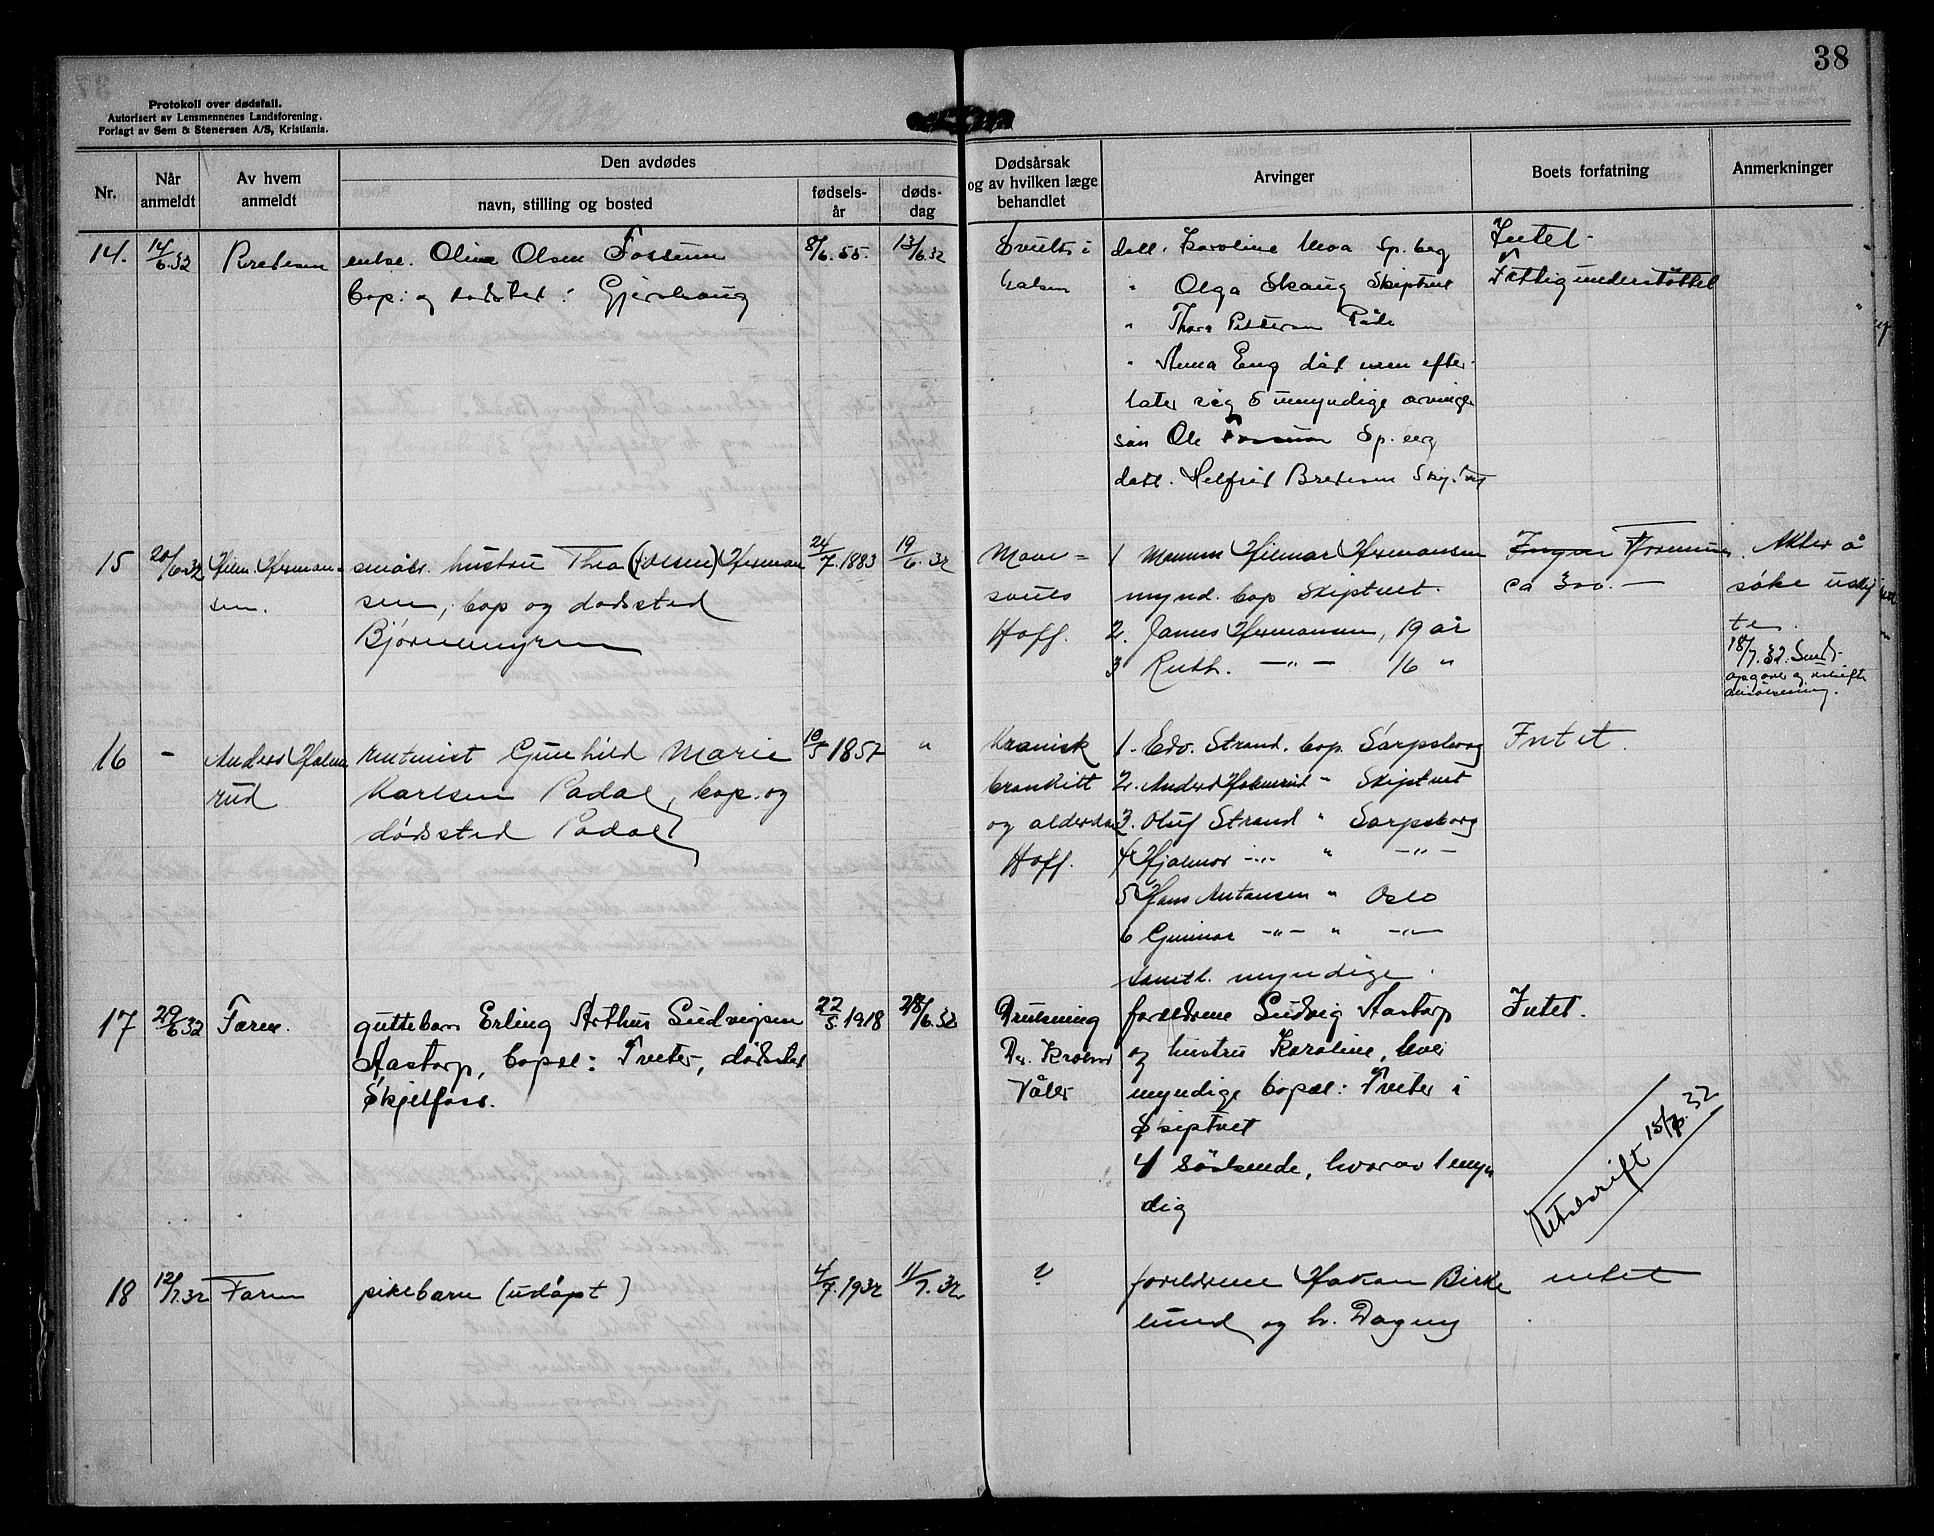 38
Protokoll over dødsfall.
Autorisert av Lensmennenes Landsforening.
Forlagt av Sem & Stenersen A/S, Kristiania.
Nr.
Når anmeldt
Av hvem anmeldt
Den avdødes
navn, stilling og bosted
fødsels-år
døds-dag
Dødsårsak og av hvilken læge behandlet
Arvinger
Boets forfatning
Anmerkninger
14.
14/6.32
Bredesen
enke. Oline Olsen Fossum
bop: og dødsted: Gjershaug
8/6.55.
13/6.32
Svulst i
halsen
datt. Karoline Moa Sp.berg
" Olga Skaug Skiptvet
" Thora Pettersen Råde
" Anna Eng död men efter-
later sig 5 umyndige arvinger
sön Ole Fossum Sp.berg
datt. Helfrid Bredesen Skiptvet
Intet.
Fattigunderstöttet
15
20/6.32
Hilm. Herman-
sen.
småbr. hustru Thea (f. Olsen) Herman
sen, bop og dødssted
Bjørnemyren
24/7.1883
19/6.32
Mave=
svulst
Hoff.
1 Mannen Hilmar Hermansen
mynd. bop Skiptvet.
2. James Hermansen, 19 år
3 Ruth. —"— 16 "
Ingen Formue
ca 300.—
Akter å
søke uskif
te.
18/7.32. Sendt
16
—
Anders Holme
rud
rentenist Gunhild Marie
Karlsen Padal, bop. og
dødssted Padal
10/5 1857
"
Kronisk
bronkitt
og alderdom
Hoff.
1. Edv. Strand. bop. Sarpsborg
2. Anders Holmerud " Skiptvet
3. Oluf Strand " Sarpsborg
4 Hjalmar —"— " —"—
5 Hans Antonsen " Oslo
6 Gunnar —"— " —"—
samtl. myndige.
Intet.
17
29/6.32
Faren.
guttebarn Erling Arthur Ludvigsen
Aastorp, bopæl: Tveter, dødsted
Skjelfoss.
22/5.1918
28/6.32
Drukning
Dr.
Våler
foreldrene Ludvig Aastorp
og hustru Karoline, hver
myndige bopæl: Tveter i
Skiptvet
4 søskende, hvorav 1 myn
dig
Intet.
Utskrift 15/7.32
18
12/7.32
Faren
pikebarn (udøpt)
4/7.1932
11/7.32
?
foreldrene Hakon Birke
lund og h. Dagny
intet